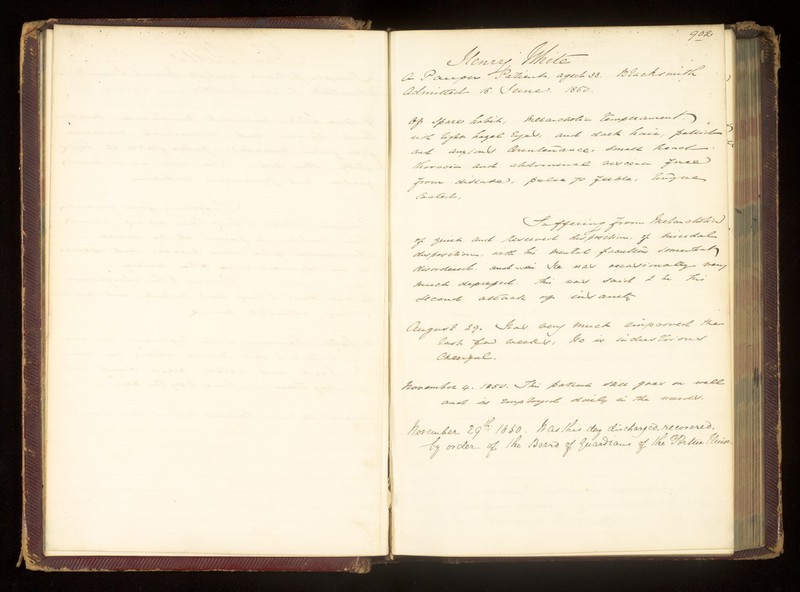 902
Henry White
A Pauper Patient, aged 32. Blacksmith
Admitted 15 June 1850.
Of spare habit, melancholic temperament,
with light hazel Eyes, and dark hair, pallid
and anxious Countenance. Small head.
Thoracic and abdominal viscera free
from disease, pulse 70 feeble. tongue
Coated.
Suffering from Melancholia
of quick and reserved disposition, of suicidal
disposition, with his mental faculties somewhat
disordered, and was occasionally very
much depressed. This was said to be his
second attack of insanity
August 29. Has very much improved the
last few weeks. He is industrious
Cheerful.
November 4. 1850. This patient still goes on well
and is employed daily in the wards.
November 29th 1850. Was this day discharged, recovered,
by order of the Board of Guardians of the Union.